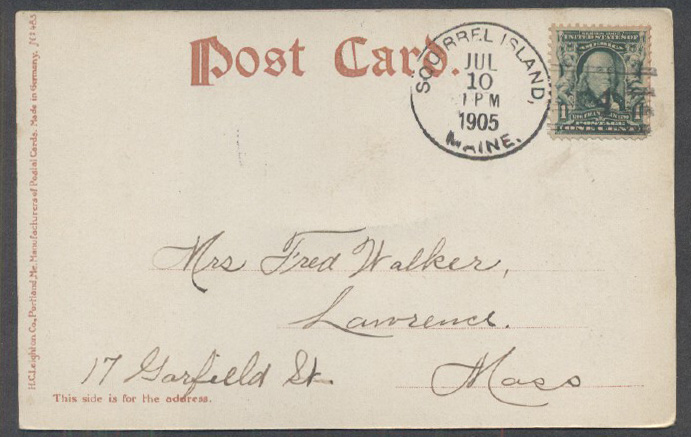 Post Card.
SQUIRREL ISLAND,
JUL
10
1 PM
1905
MAINE.
UNITED STATES OF
AMERICA
1 FRANKLIN 1
POSTAGE
ONE CENT
Mrs Fred Walker,
Lawrence.
17 Garfield St. Mass
This side is for the address.
H.C. Leighton Co., Portland, Me. Manufacturers of Postal Cards. Made in Germany.